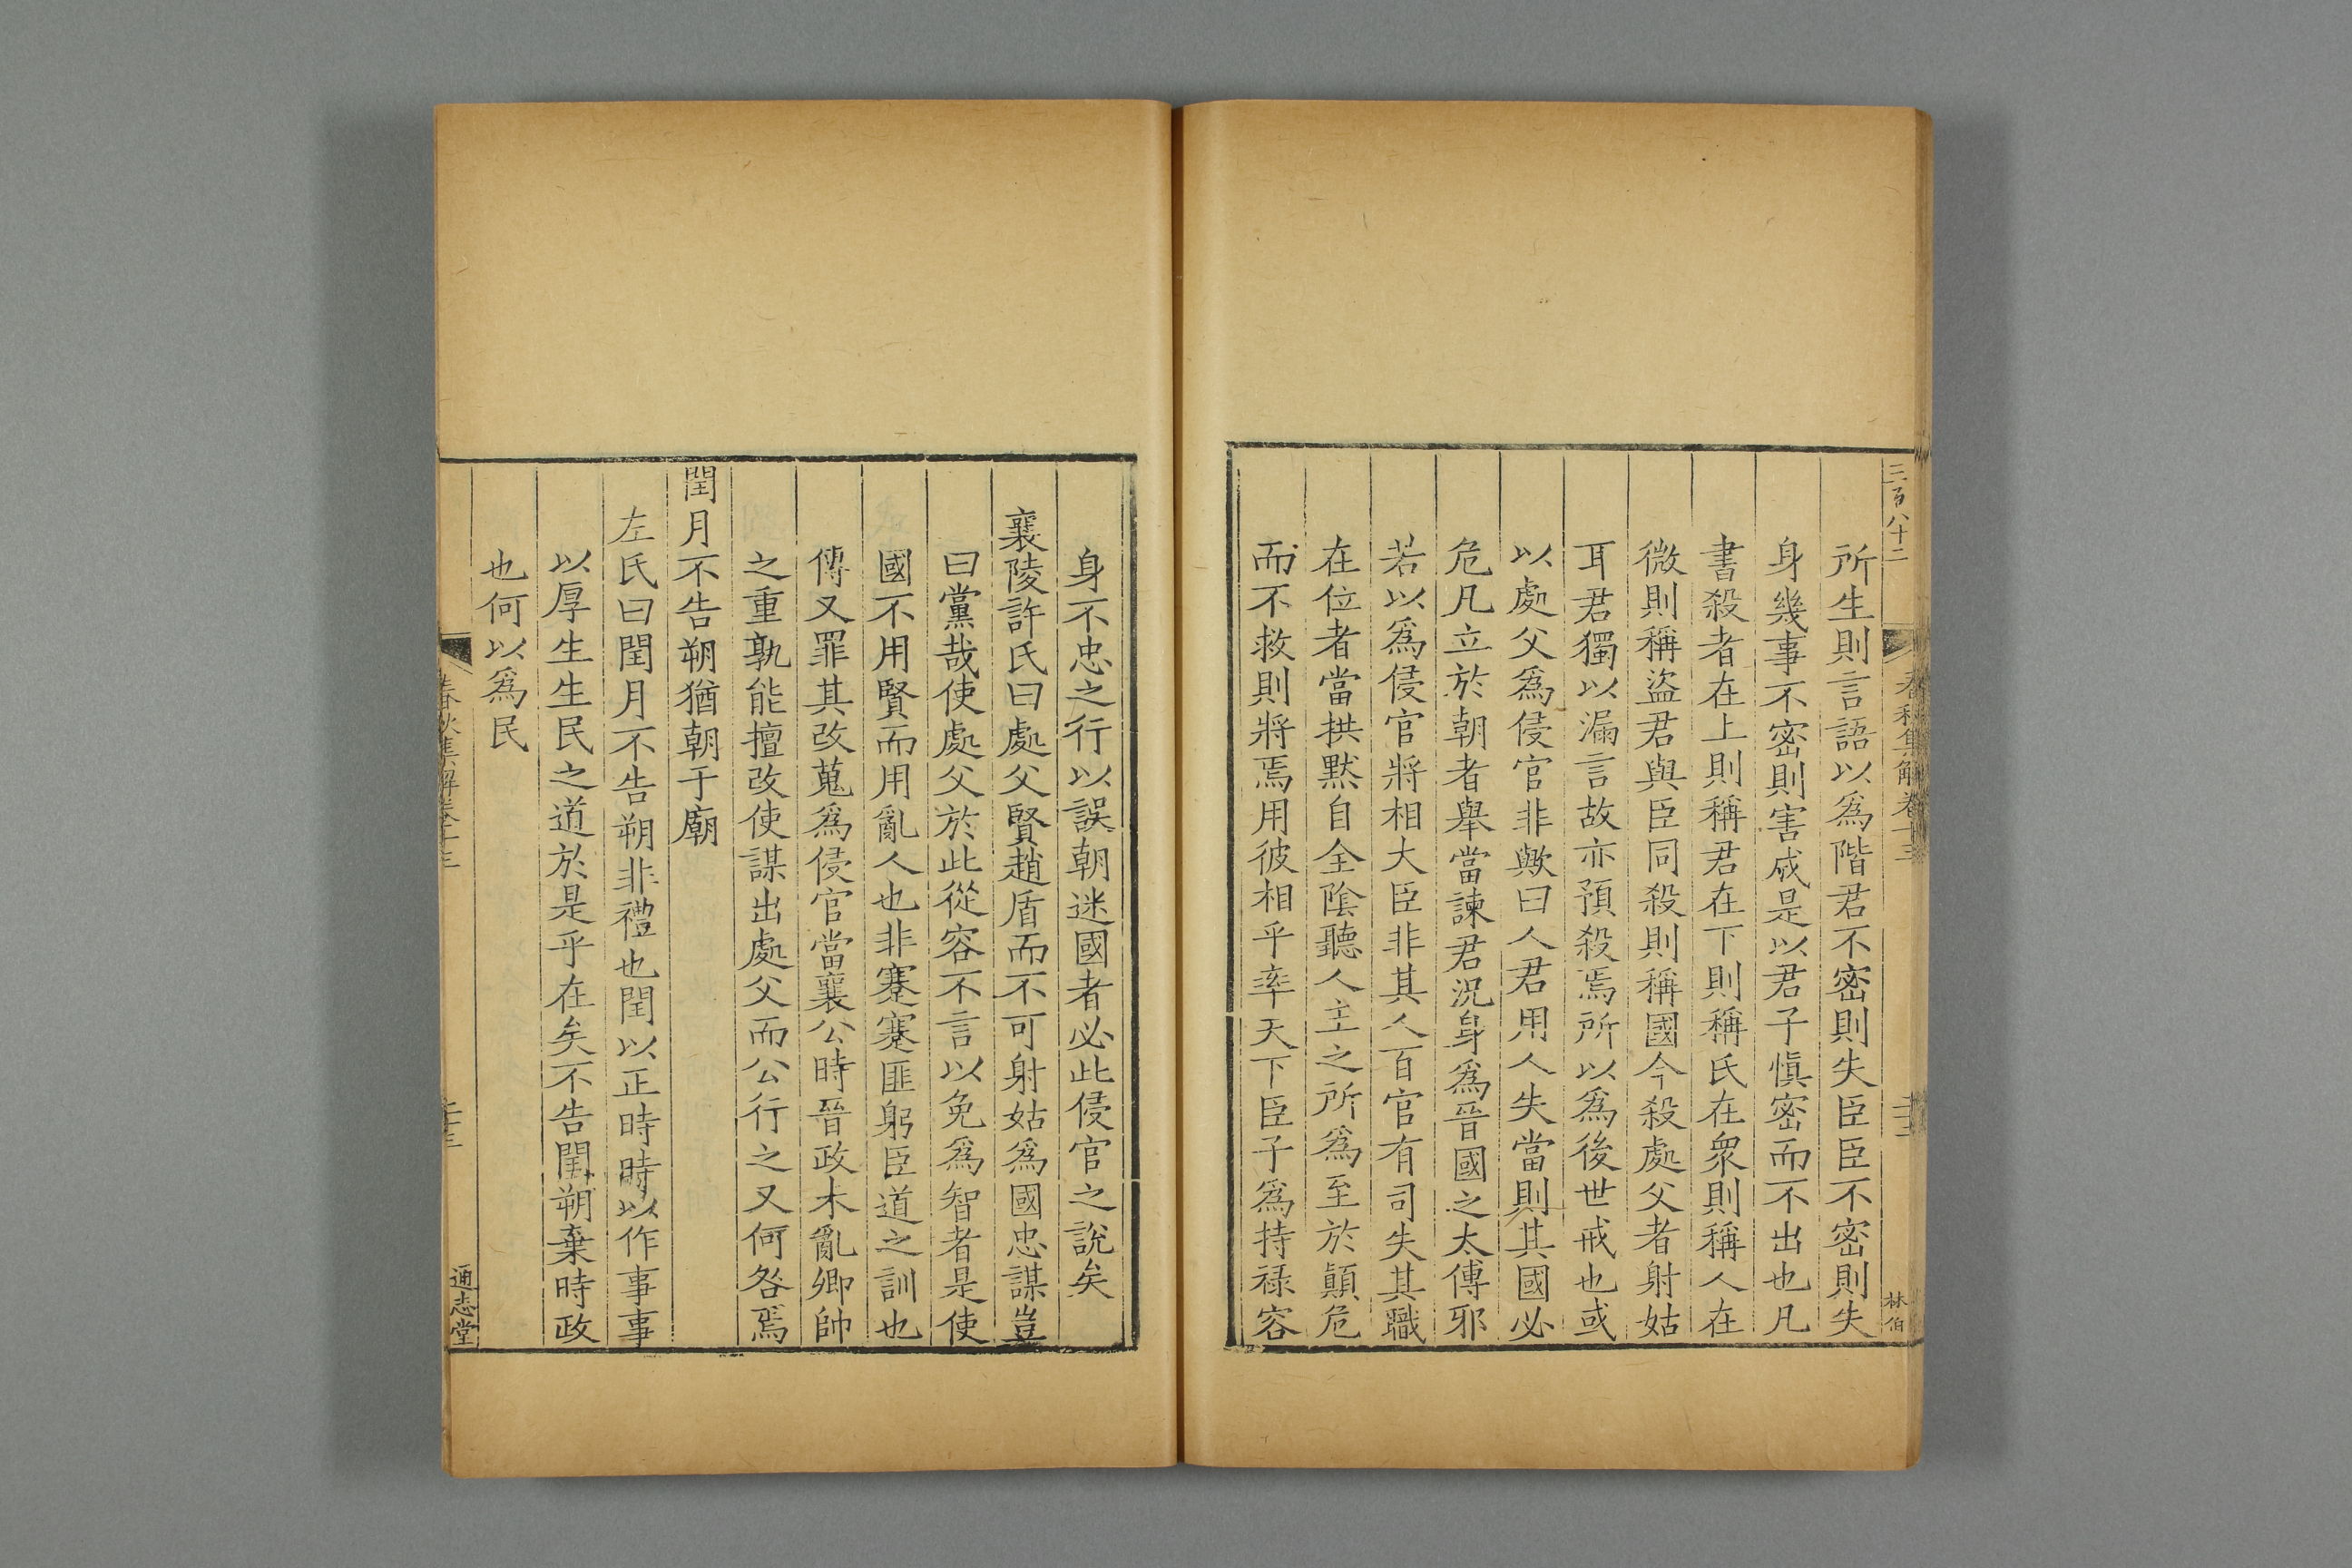 三百八十二
春秋集解卷十三
林伯
所生則言語以為階君不密則失臣臣不密則失
身幾事不密則害成是以君子慎密而不出也凡
書殺者在上則稱君在下則稱氏在衆則稱人在
微則稱盜君與臣同殺則稱國今殺處父者射姑
耳君獨以漏言故亦預殺焉所以為後世戒也或
以處父為侵官非歟曰人君用人失當則其國必
危凡立於朝者舉當諫君況身為晉國之太傅邪
若以為侵官將相大臣非其人百官有司失其職
在位者當拱默自全陰聽人主之所為至於顛危
而不救則將焉用彼相乎率天下臣子為持祿容
身不忠之行以誤朝迷國者必此侵官之說矣
襄陵許氏曰處父賢趙盾而不可射姑為國忠謀豈
曰黨哉使處父於此從容不言以免為智者是使
國不用賢而用亂人也非蹇蹇匪躬臣道之訓也
傳又罪其改蒐為侵官當襄公時晉政未亂卿帥
之重孰能擅改使謀出處父而公行之又何咎焉
閏月不告朔猶朝于廟
左氏曰閏月不告朔非禮也閏以正時時以作事事
以厚生生民之道於是乎在矣不告閏朔棄時政
也何以為民
春秋集解卷十三
通志堂